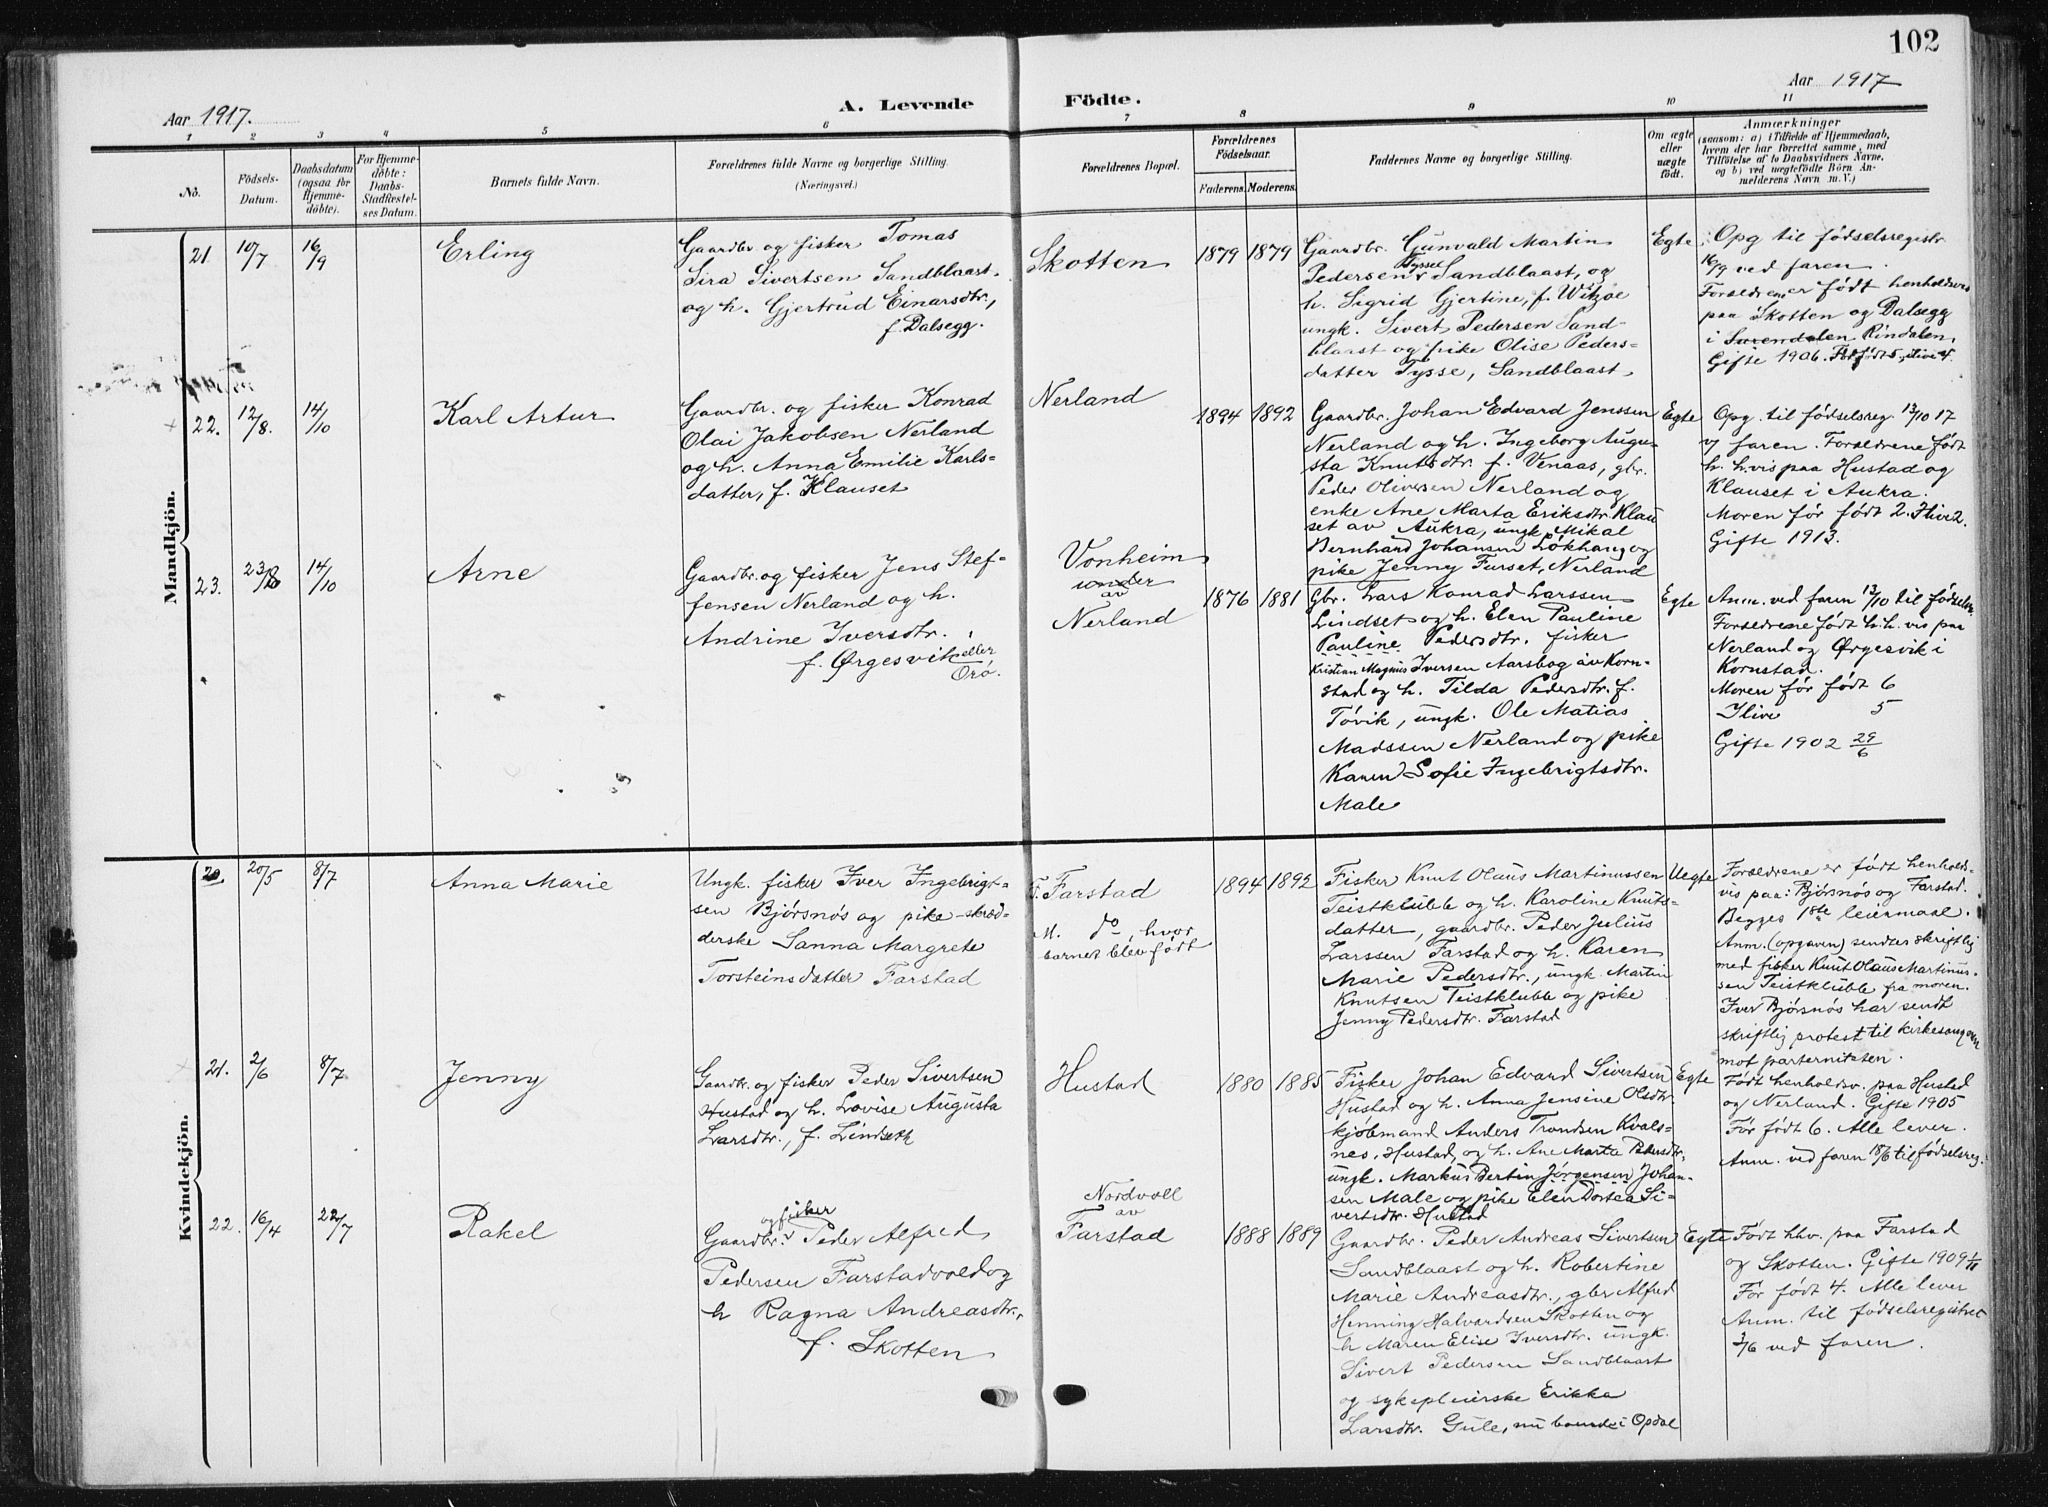 102
Aar 1917.
A. Levende
Födte.
Aar 1917
1
2
3
4
5
6
7
8
9
10
11
No.
Födsels-
Datum.
Daabsdatum
(ogsaa for
Hjemme-
döbte).
For Hjemme-
döbte:
Daabs-
Stadfæstel-
ses Datum.
Barnets fulde Navn.
Forældrenes fulde Navne og borgerlige Stilling.
(Næringsvei.)
Forældrenes Bopæl.
Forældrenes
Födselsaar.
Faderens.
Moderens.
Faddernes Navne og borgerlige Stilling.
Om ægte
eller
uægte
födt.
Anmærkninger
(saasom: a) i Tilfælde af Hjemmedaab,
hvem der har forrettet samme, med
Tilföielse af to Daabsvidners Navne,
og b) ved uægtefödte Börn An-
melderens Navn m. V.)
Mandkjön.
21.
10/7
16/9
Erling
Gaardbr og fisker Tomas
Sira Sivertsen Sandblaast
og h. Gjertrud Einarsdtr,
f. Dalsegg.
Skotten
1879
1879
Gaardbr. Gunvald Martin
Tysse
Pedersen Sandblaast, og
h. Sigrid Gjertine, f. Witzøe
ungk. Sivert Pedersen Sand-
blaast og pike Olise Peders-
datter Tysse, Sandblaast
Egte
Opg til fødselsregistr
16/9 ved faren.
Forældrene er født henholdsvis
paa Skotten og Dalsegg
i Surendalen Rindalen.
Gifte 1906. Før født 5, ilive 4.
22.
12/8.
14/10
Karl Artur
Gaardbr. og fisker Konrad
Olai Jakobsen Nerland
og h. Anna Emilie Karls-
datter, f. Klauset
Nerland
1894
1892
Gaardbr. Johan Edvard Jenssen
Nerland og h. Ingeborg Augu-
sta Knutsdtr. f. Venaas, gbr.
Peder Oliversen Nerland og
enke Ane Marta Eriksdtr. Klau
set av Aukra, ungk. Mikal
Bernhard Johansen Løkhaug og
pike Jenny Furset, Nerland
Egte
Opg. til fødselsreg. 13/10 17
v/ faren. Forældrene født
h. h.vis paa Hustad og
Klauset i Aukra.
Moren før født 2. Ilive 2.
Gifte 1913.
23.
23/8
14/10
Arne
Gaardbr. og fisker Jens Stef-
fensen Nerland og h.
Andrine Iversdtr.
f. Ørgesvik eller
Orö.
Vonheim
under
av
Nerland
1876
1881
Gbr. Lars Konrad Larssen
Lindset og h. Elen Pauline
Pauline Pedersdtr. fisker
Kristian Magnus Iversen Aarsbog av Korn-
stad og h. Tilda Pedersdtr. f.
Tøvik, ungk. Ole Matias
Madssen Nerland og pike
Karen Sofie Ingebrigtsdtr.
Male
Egte
Anm. ved faren 13/10 til fødselsr.
Forældrene født h.h. vis paa
Nerland og Ørgesvik i
Kornstad.
Moren før født 6
Ilive 5
Gifte 1902 29/6
Kvindekjön.
20
20/5
8/7
Anna Marie
Ungk. fisker Iver Ingebrigt-
sen Bjørsnøs og pike-skræd-
derske Sanna Margrete
Torsteinsdatter Farstad
F. Farstad
M. do, hvor
barnet blev født
1894
1892
Fisker Knut Olaus Martinussen
Teistklubb og h. Karoline Knuts-
datter, gaardbr. Peder Julius
Larssen Farstad og h. Karen
Marie Pedersdtr., ungk. Martin
Knutsen Teistklubb og pike
Jenny Pedersdtr. Farstad
Uegte
Forældrene er født henholds-
vis paa: Bjørsnøs og Farstad.
Begges 1ste leiermaal.
Anm. (opgaven) sendtes skriftlig
med fisker Knut Olaus Martinus-
sen Teistklubb fra moren.
Iver Bjørsnøs har sendt
skriftlig protest til kirkesangeren
mot paterniteten.
21.
2/6
8/7
Jenny
Gaardbr. og fisker Peder Sivertsen
Hustad og h. Lovise Augusta
Larsdtr., f. Lindseth
Hustad
1880
1885
Fisker Johan Edvard Sivertsen
Hustad og h. Anna Jensine Olsdtr.
kjøbmand Anders Trondsen Kvals-
nes, Hustad, og h. Ane Marta Pedersdtr.
ungk. Markus Bertin Jørgensen Johan-
sen Male og pike Elen Dortea Si-
vertsdtr. Hustad
Egte
Født henholdsv. paa Hustad
og Nerland. Gifte 1905
Før født 6. Alle lever.
Anm. ved faren 18/6 til fødselsreg.
22.
16/4
22/7
Rakel
og fisker
Gaardbr. Peder Alfred
Pedersen Farstadvold og
h Ragna Andreasdtr.
f. Skotten
Nordvoll
av
Farstad
1888
1889
Gaardbr. Peder Andreas Sivertsen
Sandblaast og h. Robertine
Marie Andreasdtr., gbr Alfred
Henning Halvardsen Skotten og
h Maren Elise Iversdtr. ungk.
Sivert Pedersen Sandblaast
og sykepleierske Erikka
Larsdtr. Gule, nu boende i Opdal
Egte
Født hhv. paa Farstad
og Skotten. Gifte 1909 1/11
Før født 4. Alle lever
Anm. til fødselsregistret
3/6 ved faren.